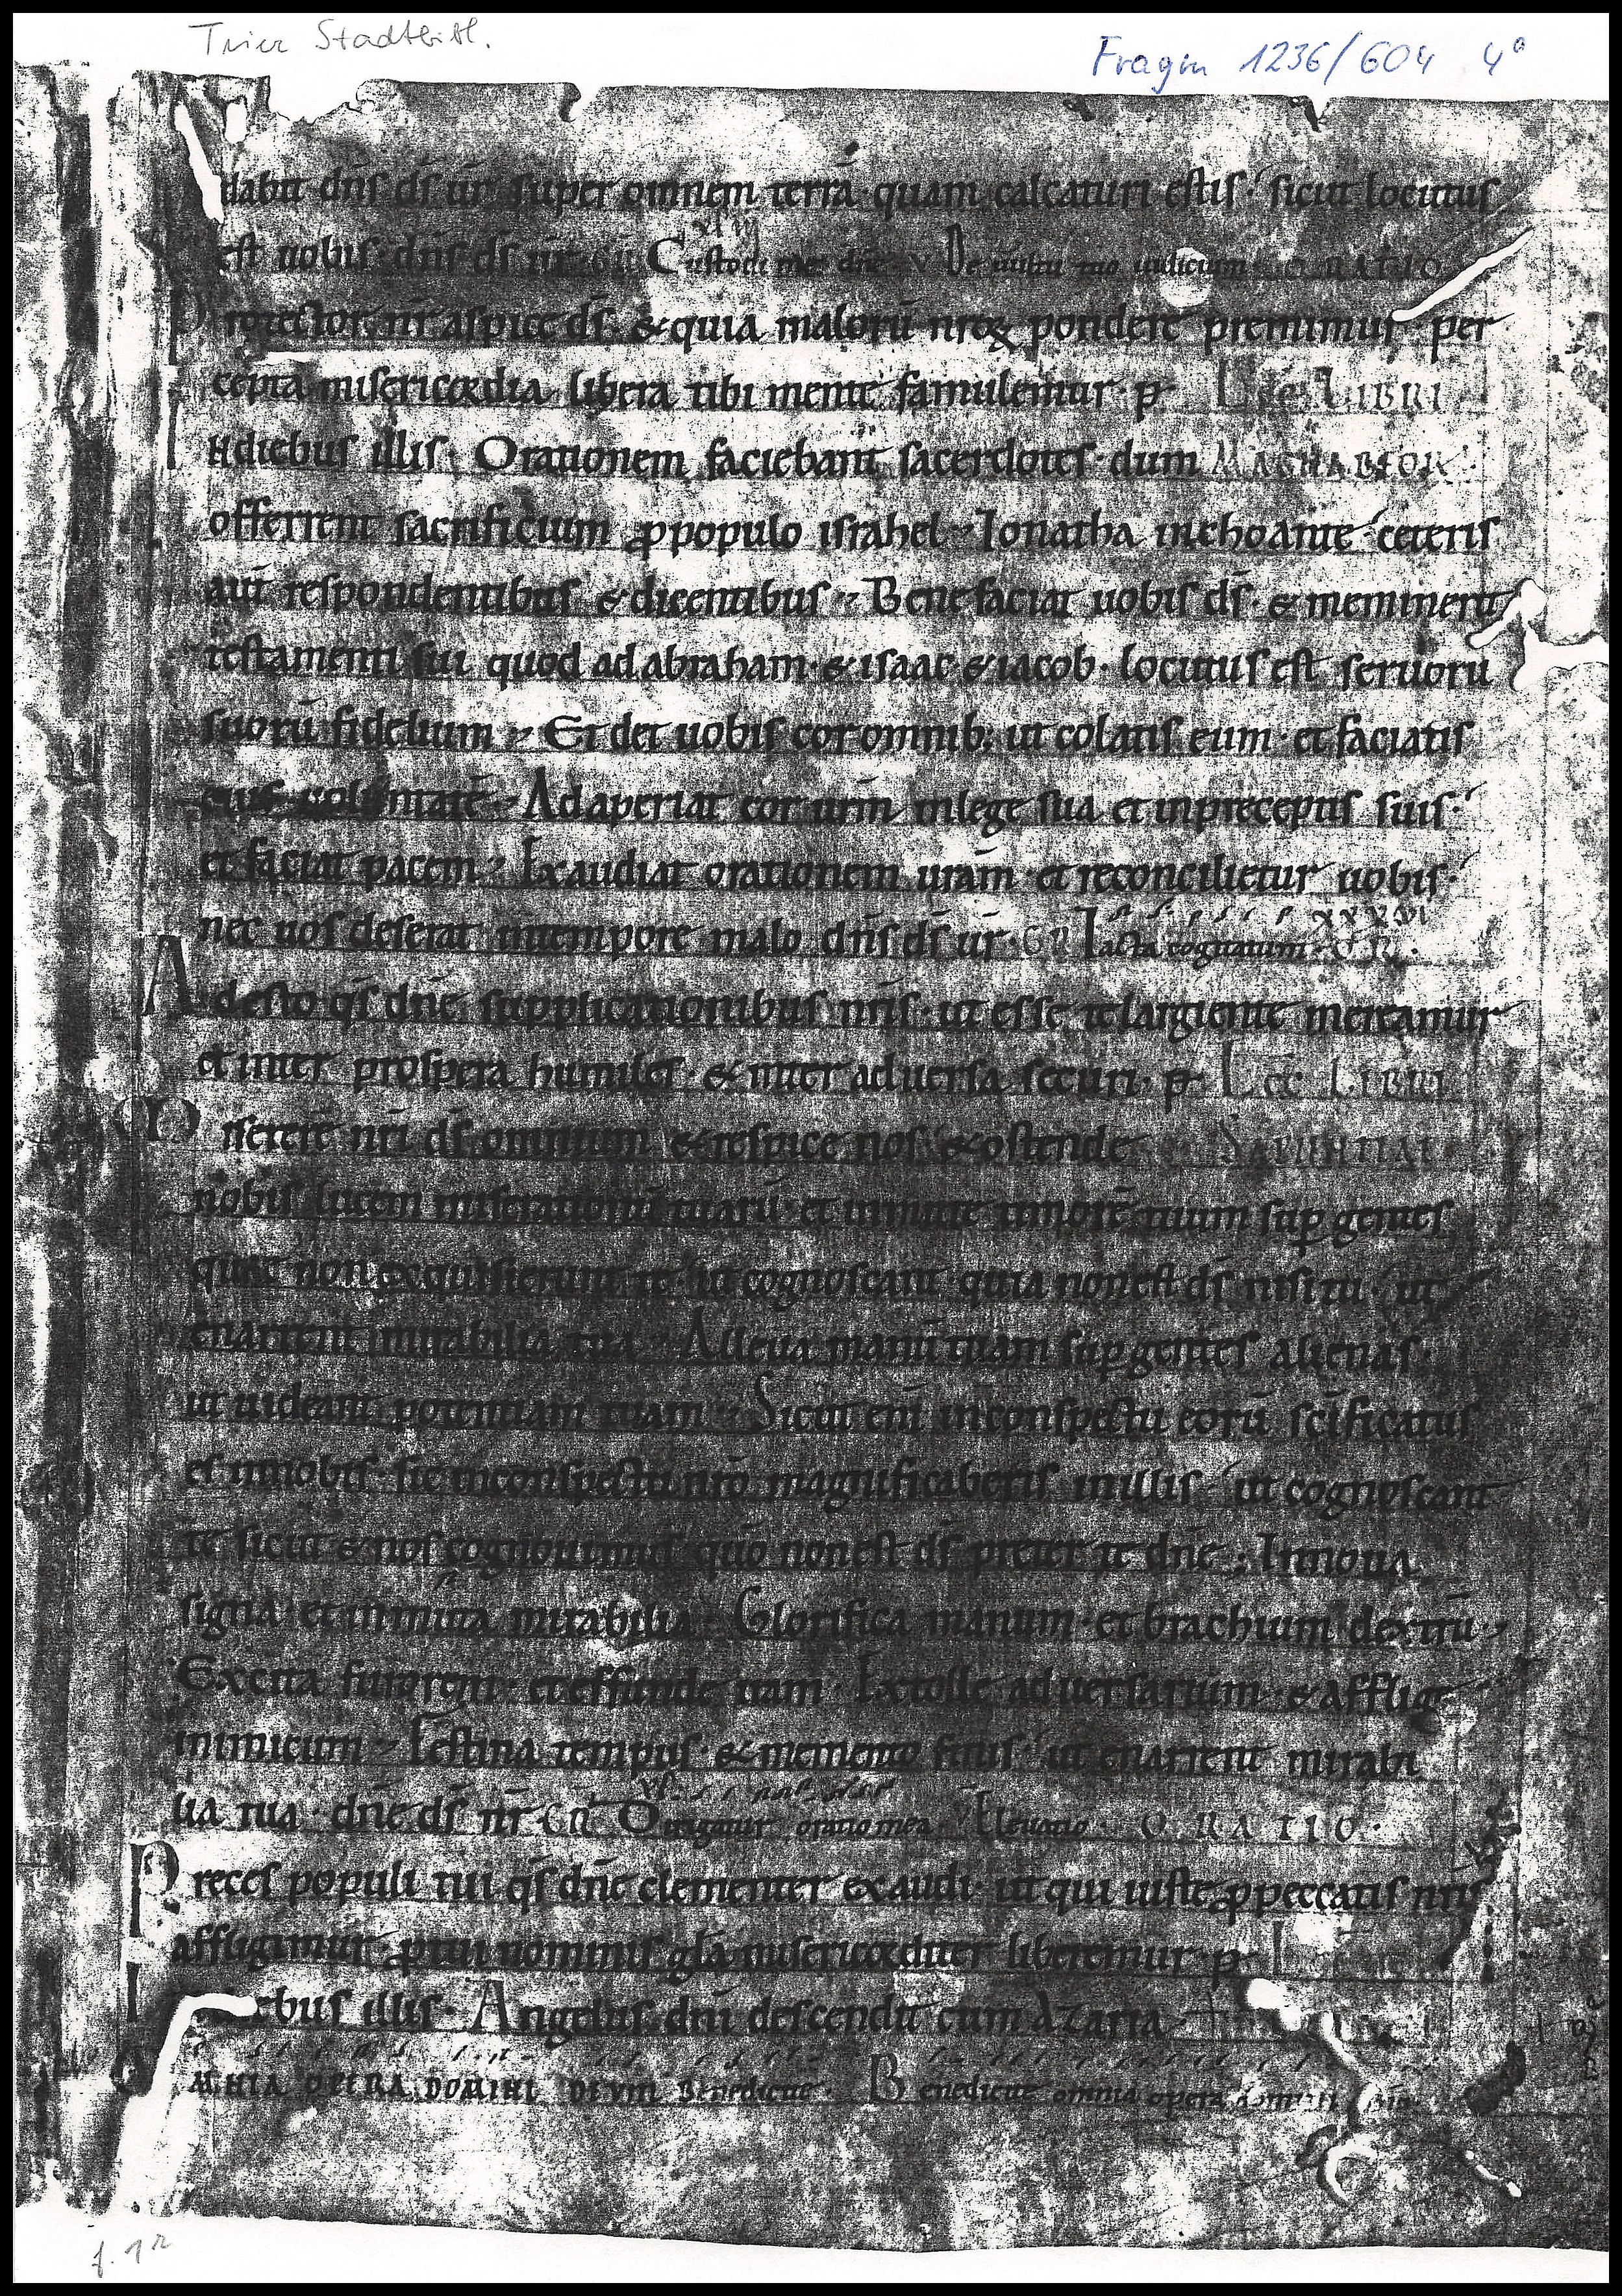 Trier Stadtbibl.
Fragm 1236/604 4°
dabit dn̄s ds̄ ur̄ super omnem terrā· quam calcaturi estis· sicut locutus
est uobis· dn̄s ds̄ ur̄ Custodi me dn̄e V De uultu tuo iudicium ORATIO
Protector nr̄ aspice ds̄· & quia malorū nr̄oꝝ pondere premimur per
cepta misericordia libera tibi mente famulemur· p̱ Lec̄ LIBRI
Indiebus illis· Orationem faciebant sacerdotes· dum MACHABEOR
offerrent sacrificium ꝓpopulo israhel· Ionatha inchoante· ceteris
aūt respondentibus & dicentibus· Benefaciat uobis ds̄· & meminerit
testamenti sui quod adabraham· & isaac & iacob· locutus est seruorū
suorū fidelium· Et det uobis cor omnib; ut colatis eum· et faciatis
eius uoluntatē· Adaperiat cor urm̄ inlege sua et inpreceptis suis·
et faciat pacem· Exaudiat orationem urām et reconcilietur uobis·
nec uos deserat intempore malo dn̄s ds̄ ur̄· GR̄ Iacta cogitatum· XXXVI OR̄
Adesto qs̄ dn̄e supplicationibus nr̄is· ut esse te largiente mereamur
et inter prospera humiles· & inter aduersa securi· p̱ Lec̄ LIBRI
Miserere nr̄i ds̄ omnium & respice nos & ostende SAPIENTIAE
nobis lucem miserationū tuarū· et inmitte timorē tuum sup̱ gentes
quae non exquisierunt te· ut cognoscant quia non est ds̄ nisi tu· ut
enarrent mirabilia tua· Alleua manū tuam sup̱ gentes alienas
ut uideant potentiam tuam· Sicut eni inconspectu eorū sc̄ificatus
es innobis· sic inconspectu nr̄o magnificaberis inillis· ut cognoscant
te sicut & nos cognouimus quō non est ds̄ preter te dn̄e· Innoua
signa et inmuta mirabilia· Glorifica manum et brachium dextrū·
Excita furorem et effunde iram· Extolle aduersarium· & afflige
inimicum· Festina tempus & memento finis· ut enarrent mirabi
lia tua· dn̄e ds̄ nr̄ GR̄ Dirigatur oratio mea Eleuatio· ORATIO·
Preces populi tui qs̄ dn̄e clementer exaudi· ut qui iuste ꝓpeccatis nr̄is
affligimur· ꝓtui nominis gl̄a misericorditer liberemur· p̱ L
I ebus illis· Angelus dn̄i descendit cum Azaria
OMNIA OPERA DOMINI DEVM Benedicite· Benedicite omnia opera domini
f. 1r